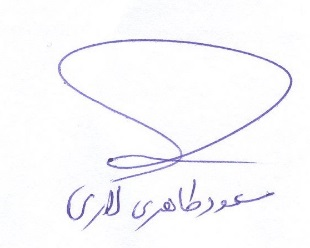 مسعود طاهری لاری